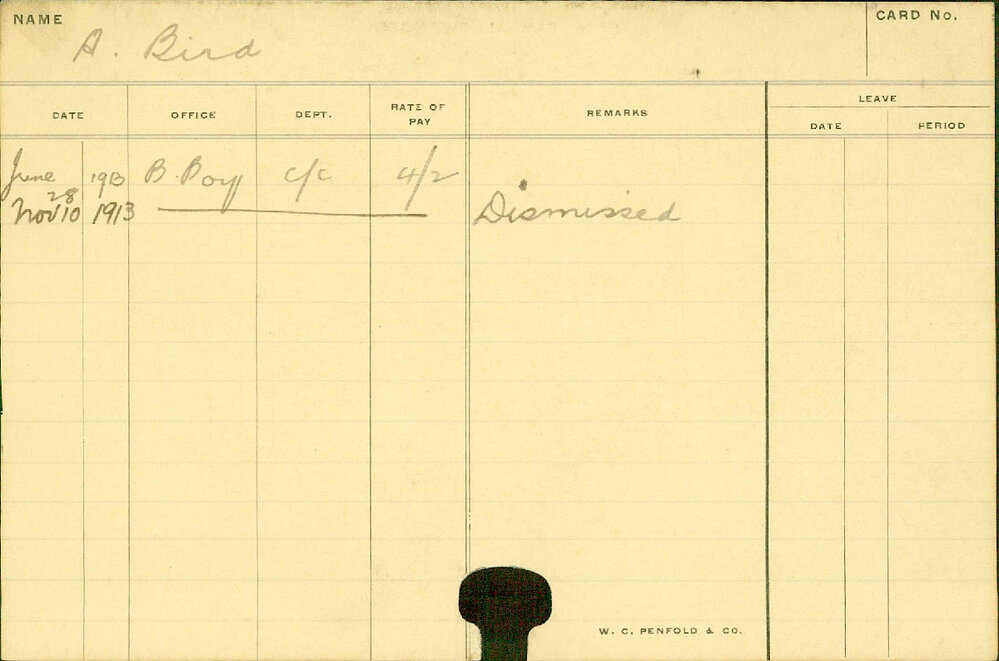 NAME
A. Bird
CARD No.
DATE OFFICE DEPT. RATE OF PAY REMARKS LEAVE
DATE PERIOD
June 1913 B. Boy C/C 4/2
28
Nov 10 1913 Dismissed
W. C. PENFOLD & CO.